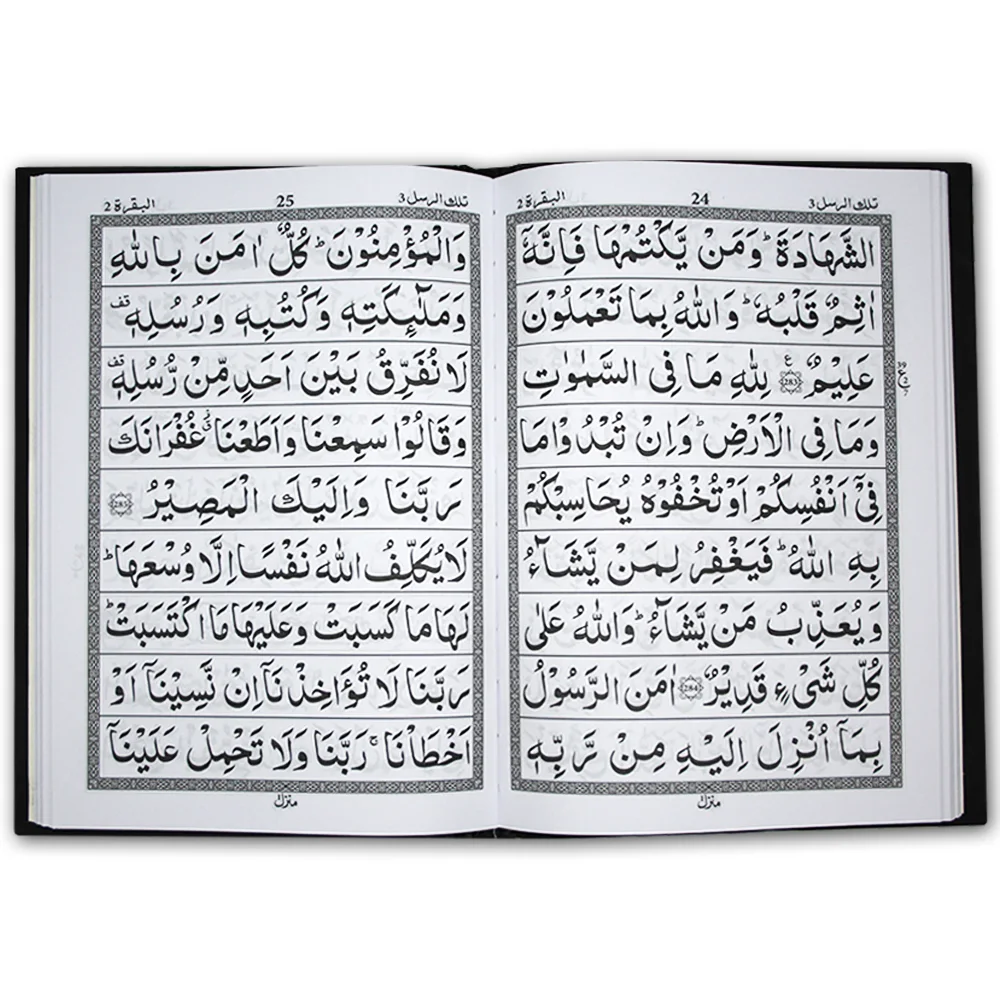 تلك الرسل 3 24 البقرة 2
الشَّهَادَةَ ؕ وَمَنْ يَّكْتُمْهَا فَاِنَّهٗۤ
اٰثِمٌ قَلْبُهٗ ؕ وَاللّٰهُ بِمَا تَعْمَلُوْنَ
عَلِيْمٌ ۧ 283 لِلّٰهِ مَا فِى السَّمٰوٰتِ
وَمَا فِى الْاَرْضِ ؕ وَاِنْ تُبْدُوْا مَا
فِىْۤ اَنْفُسِكُمْ اَوْ تُخْفُوْهُ يُحَاسِبْكُمْ
بِهِ اللّٰهُ ؕ فَيَغْفِرُ لِمَنْ يَّشَآءُ
وَيُعَذِّبُ مَنْ يَّشَآءُ ؕ وَاللّٰهُ عَلٰى
كُلِّ شَىْءٍ قَدِيْرٌ 284 اٰمَنَ الرَّسُوْلُ
بِمَاۤ اُنْزِلَ اِلَيْهِ مِنْ رَّبِّهٖ
منزل ١
تلك الرسل 3 25 البقرة 2
وَالْمُؤْمِنُوْنَ ؕ كُلٌّ اٰمَنَ بِاللّٰهِ
وَمَلٰٓئِكَتِهٖ وَكُتُبِهٖ وَرُسُلِهٖ قف
لَا نُفَرِّقُ بَيْنَ اَحَدٍ مِّنْ رُّسُلِهٖ قف
وَقَالُوْا سَمِعْنَا وَاَطَعْنَا غُفْرَانَكَ
رَبَّنَا وَاِلَيْكَ الْمَصِيْرُ 285
لَا يُكَلِّفُ اللّٰهُ نَفْسًا اِلَّا وُسْعَهَا ؕ
لَهَا مَا كَسَبَتْ وَعَلَيْهَا مَا اكْتَسَبَتْ ؕ
رَبَّنَا لَا تُؤَاخِذْنَاۤ اِنْ نَّسِيْنَاۤ اَوْ
اَخْطَاْنَا ۚ رَبَّنَا وَلَا تَحْمِلْ عَلَيْنَاۤ
منزل ١